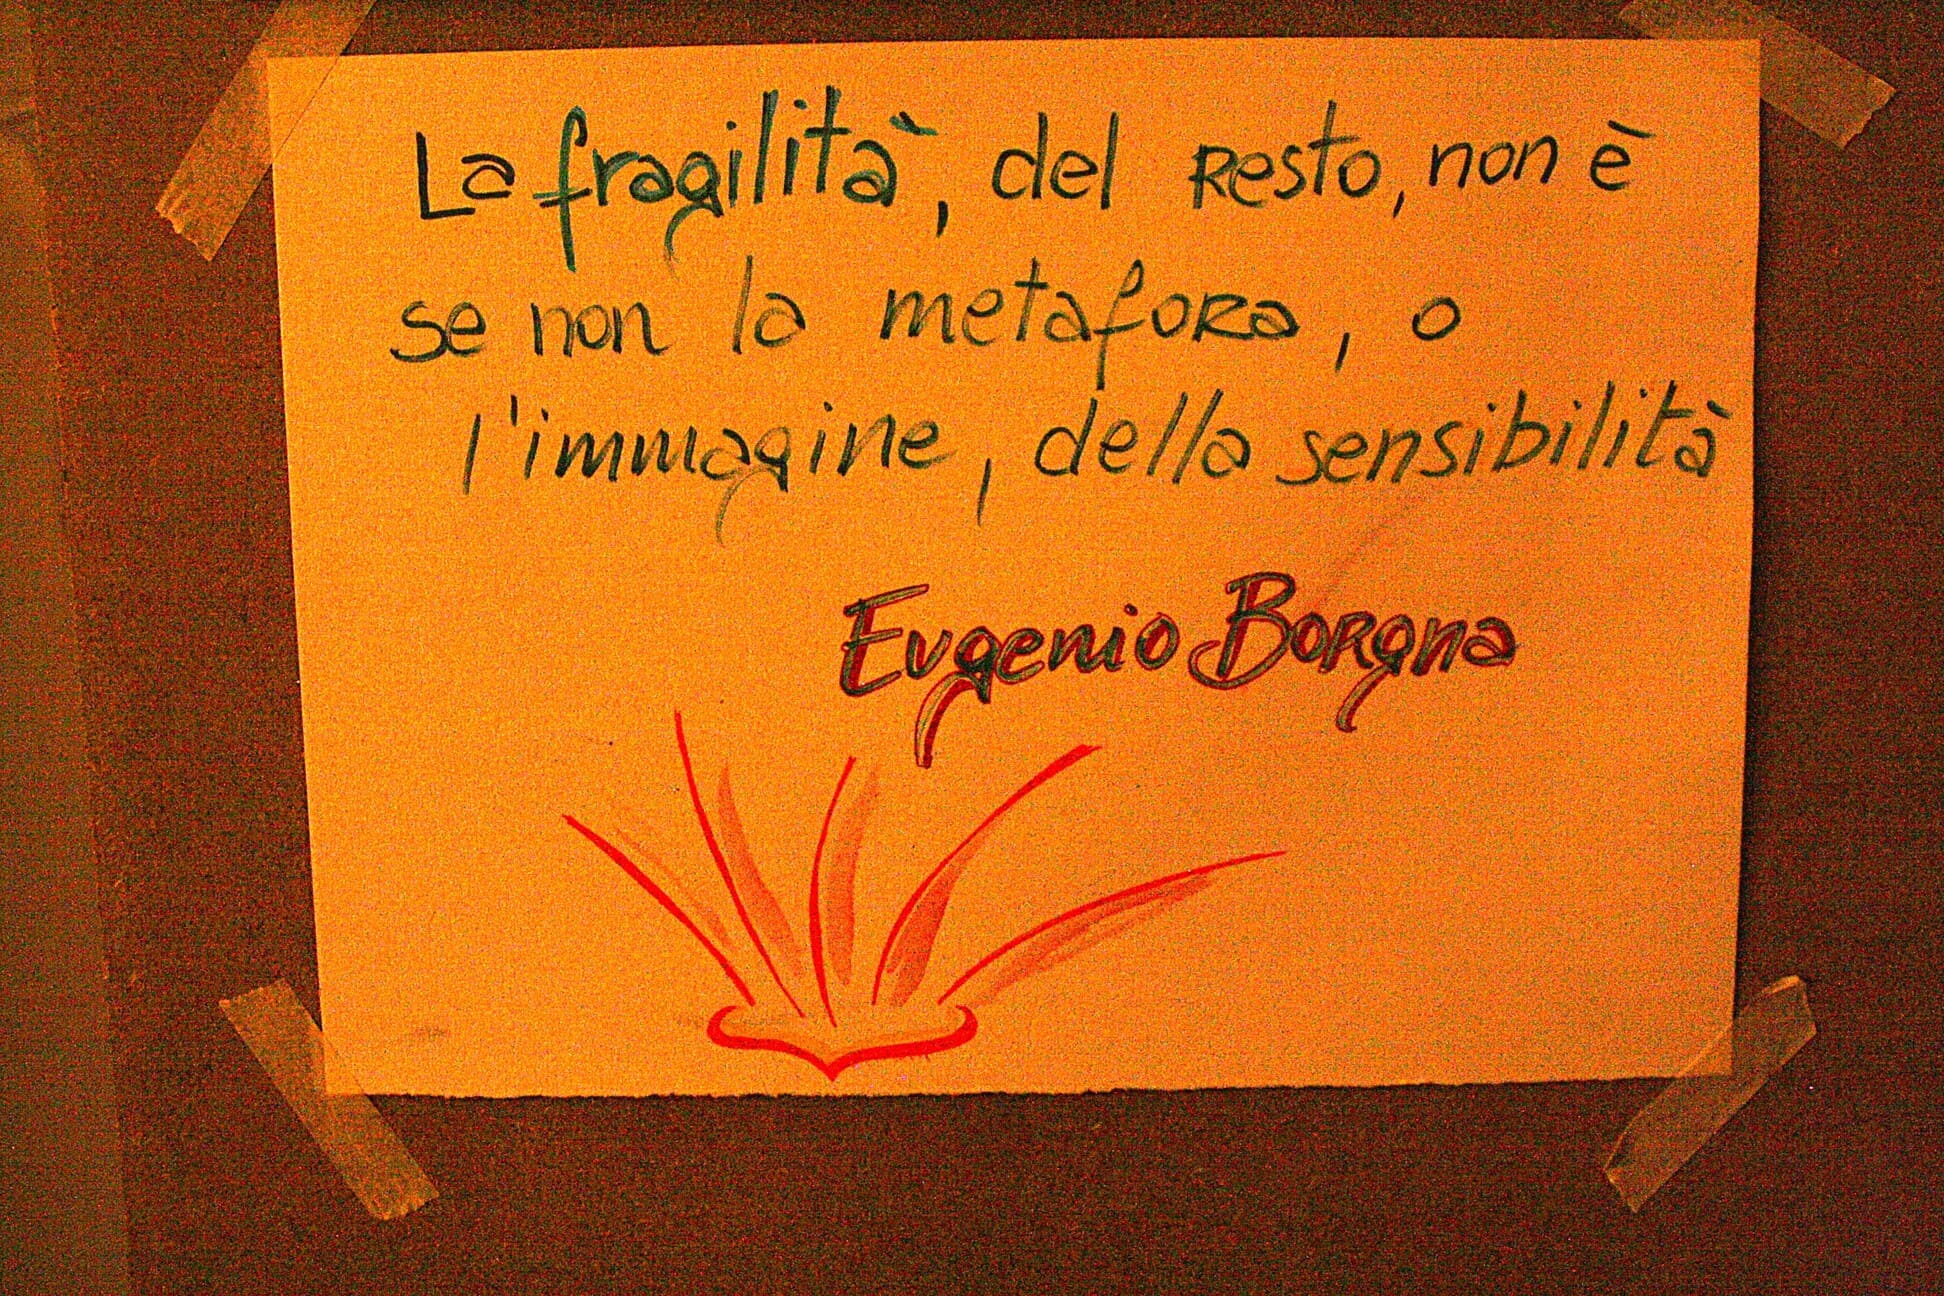 La fragilità, del resto, non è
se non la metafora, o
l'immagine, della sensibilità
Eugenio Borgna